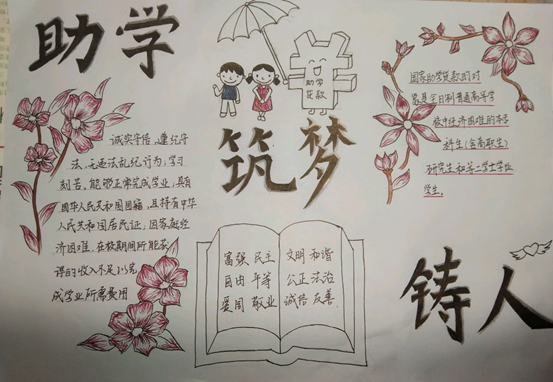 助学
筑梦
铸人
助学
贷款
诚实守信,遵纪守
法,无违法乱纪行为,学习
刻苦,能够正常完成学业,具有
中华人民共和国国籍,且持有中华
人民共和国居民证,因家庭经
济困难,在校期间所能获
得的收入不足以完
成学业所需费用
富强 民主 文明 和谐
自由 平等 公正 法治
爱国 敬业 诚信 友善
国家助学贷款的对
象是全日制普通高等学
校中经济困难的本专
科生(含高职生)
研究生和第二学士学位
学生